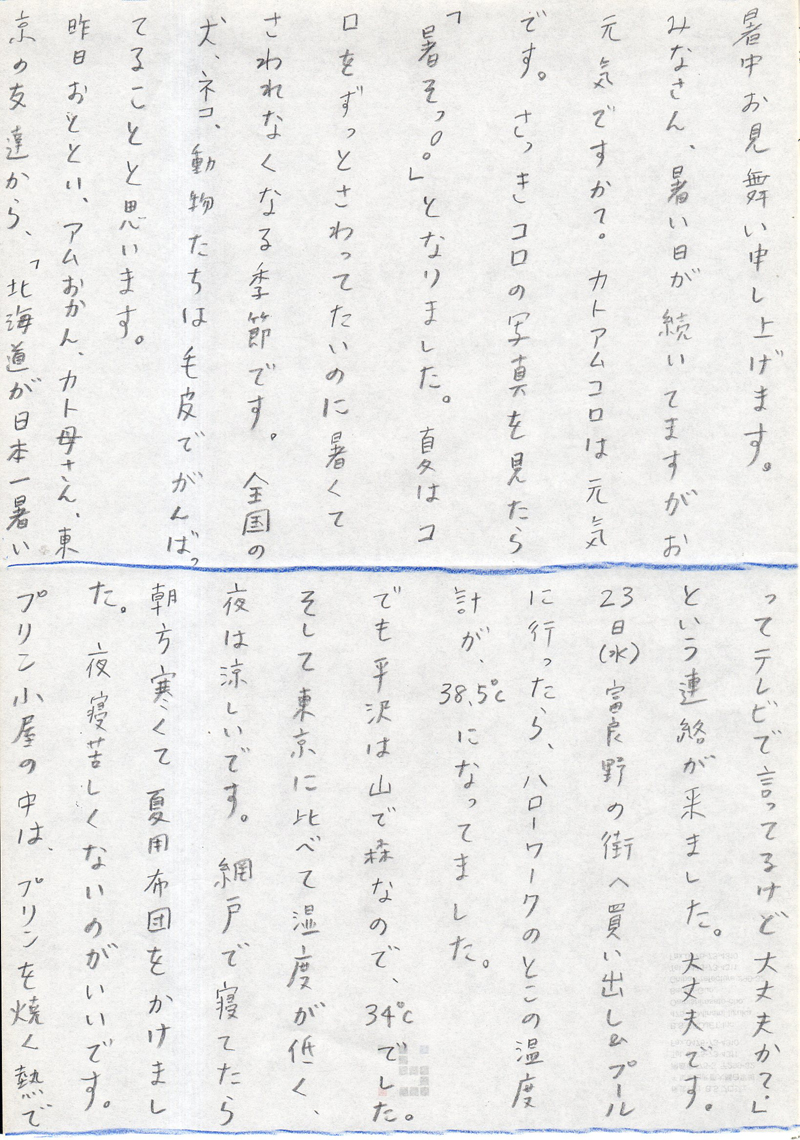 暑中お見舞い申し上げます。
みなさん、暑い日が続いてますがお
元気ですか?。カトアムコロは元気
です。さっきコロの写真を見たら
「暑そっ。。」となりました。夏はコ
ロをずっとさわってたいのに暑くて
さわれなくなる季節です。全国の
犬、ネコ、動物たちは毛皮でがんばっ
てることと思います。
昨日おととい、アムおかん、カト母さん、東
京の友達から、「北海道が日本一暑い
ってテレビで言ってるけど大丈夫か?」
という連絡が来ました。大丈夫です。
23日(水)富良野の街へ買い出し&プール
に行ったら、ハローワークのとこの温度
計が、38.5℃になってました。
でも平沢は山で森なので、34℃でした。
そして東京に比べて温度が低く、
夜は涼しいです。網戸で寝てたら
朝方寒くて夏用布団をかけまし
た。夜寝苦しくないのがいいです。
プリン小屋の中は、プリンを焼く熱で